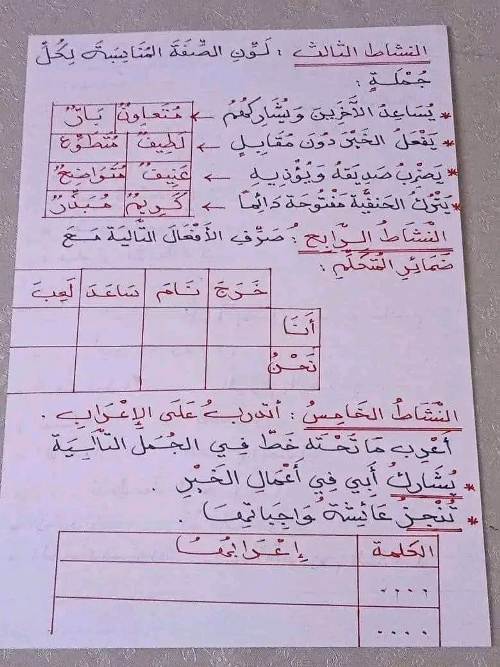 النشاط الثالث : لَوِّنِ الصِّفَةَ المُنَاسِبَةَ لِكُلِّ
جُمْلَةٍ :
* يُسَاعِدُ الآخَرِينَ وَيُشَارِكُهُمْ ← مُتَعَاوِنٌ بَارٌّ
* يَفْعَلُ الخَيْرَ دُونَ مُقَابِلٍ ← لَطِيفٌ مُتَطَوِّعٌ
* يَضْرِبُ صَدِيقَهُ وَيُؤْذِيهِ ← عَنِيفٌ مُتَوَاضِعٌ
* يَتْرُكُ الحَنَفِيَّةَ مَفْتُوحَةً دَائِمًا ← كَرِيمٌ مُبَذِّرٌ
النَّشَاطُ الرَّابِعُ : صَرِّفِ الأَفْعَالَ التَّالِيَةَ مَعَ
ضَمَائِرِ المُتَكَلِّمِ :
خَرَجَ نَامَ سَاعَدَ لَعِبَ
أَنَا
نَحْنُ
النَّشَاطُ الخَامِسُ : أتدربُ عَلَى الإِعْرَابِ .
أعْرِب مَا تَحْتَه خَطّ فِي الجُمَلِ التَّالِيَةِ
* يُشَارِكُ أَبِي فِي أَعْمَالِ الخَيْرِ .
* تُنْجِزُ عَائِشَةُ وَاجِبَاتِهَا .
الكلمة إِعْرَابُهَا
....
....